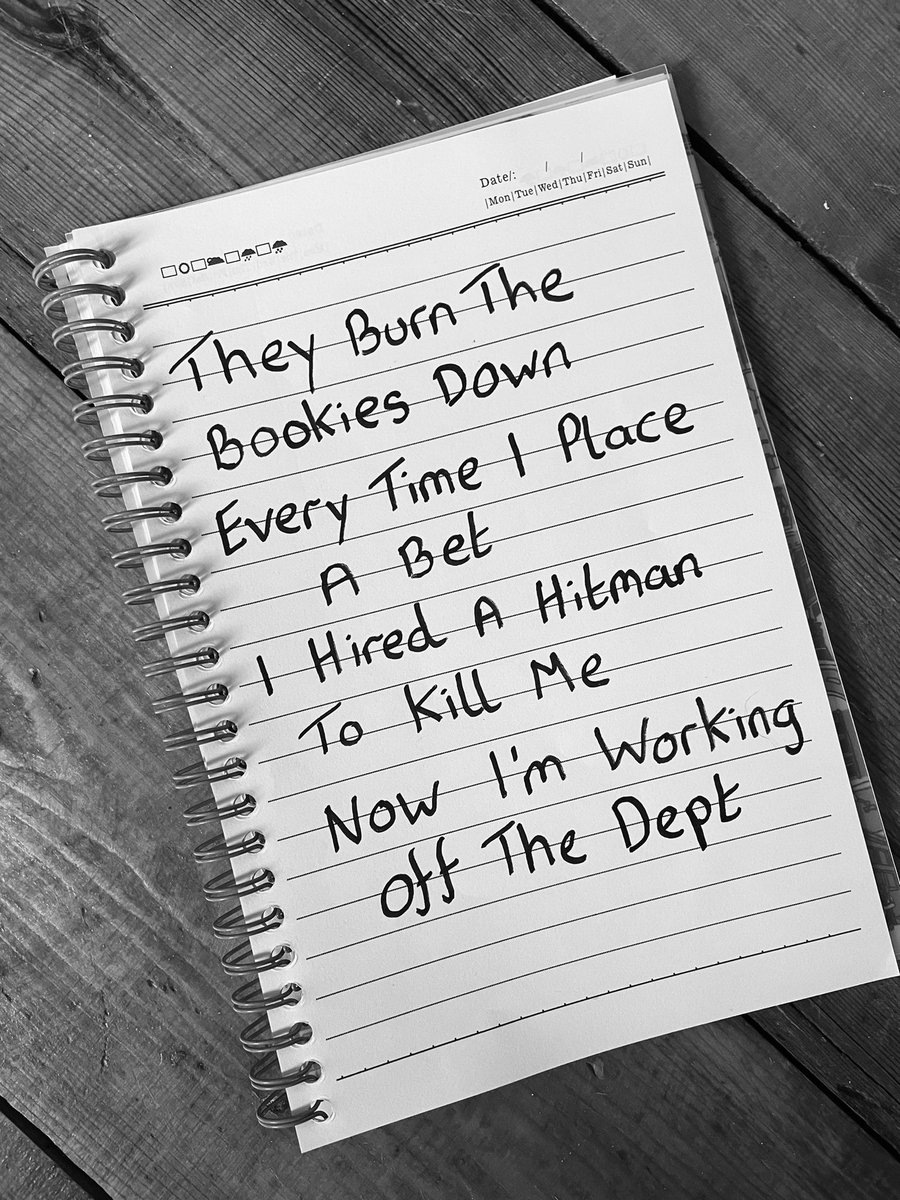 Date/: / /
|Mon|Tue|Wed|Thu|Fri|Sat|Sun|
They Burn The
Bookies Down
Every Time I Place
A Bet
I Hired A Hitman
To Kill Me
Now I'm Working
Off The Dept